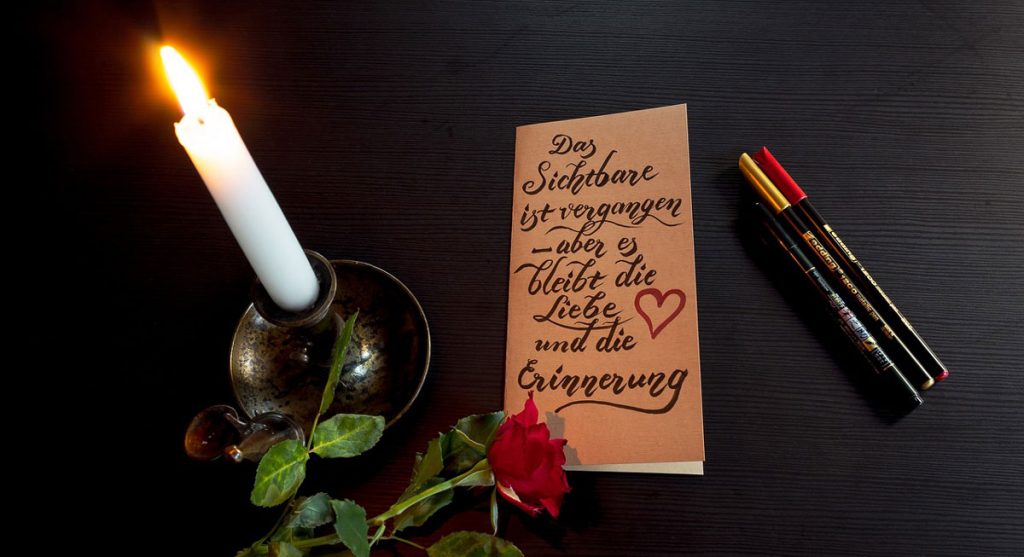 Das
Sichtbare
ist vergangen
– aber es
bleibt die
Liebe
und die
Erinnerung
edding